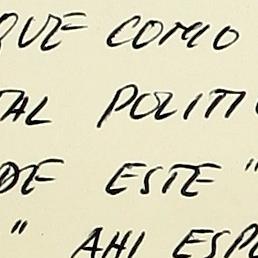 QUE COMO
TAL POLITI
DE ESTE "
" AHI ESPE